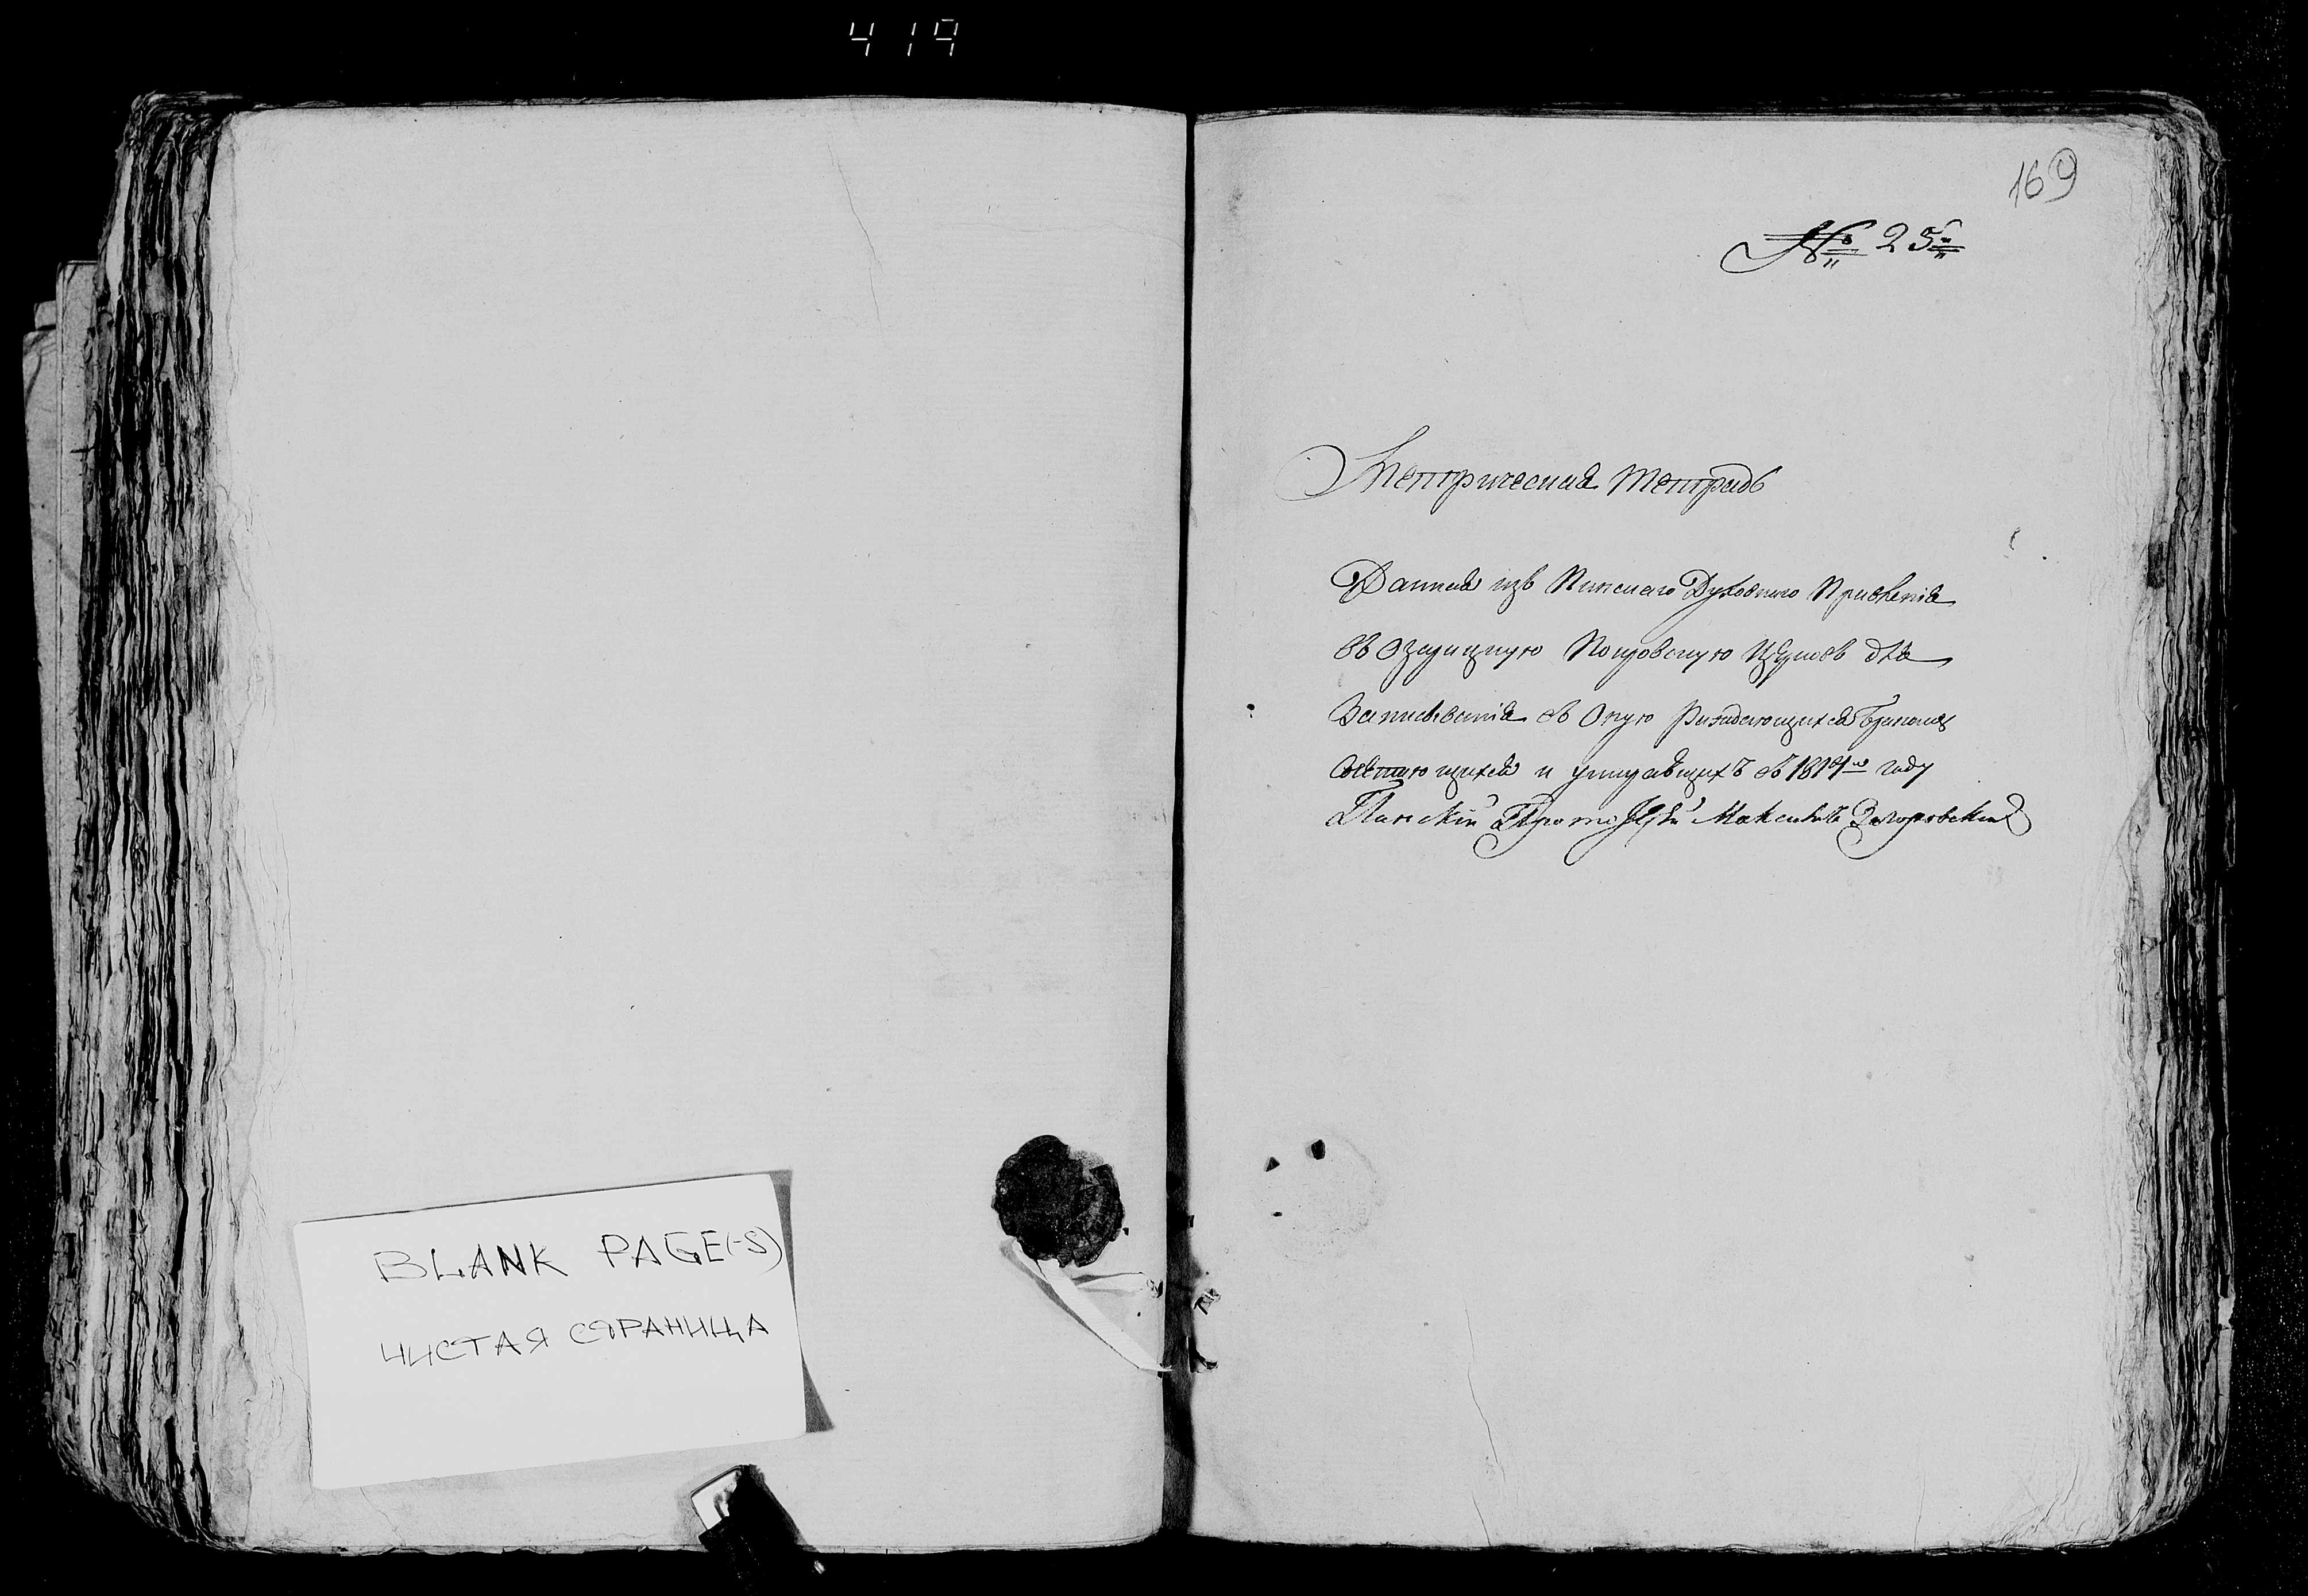 419
BLANK PAGE(-S)
ЧИСТАЯ СТРАНИЦА
169
№ 25й
Метрическая тетрадь
Данная изъ Пинскаго Духовного Правленія
въ Озарицкую Покровскую Церковь для
Записыванія въ Оную Рождающихся Бракомъ
Сочетающихся и умирающихъ въ 1819мъ году
Пинскій Протоіерей Максимъ